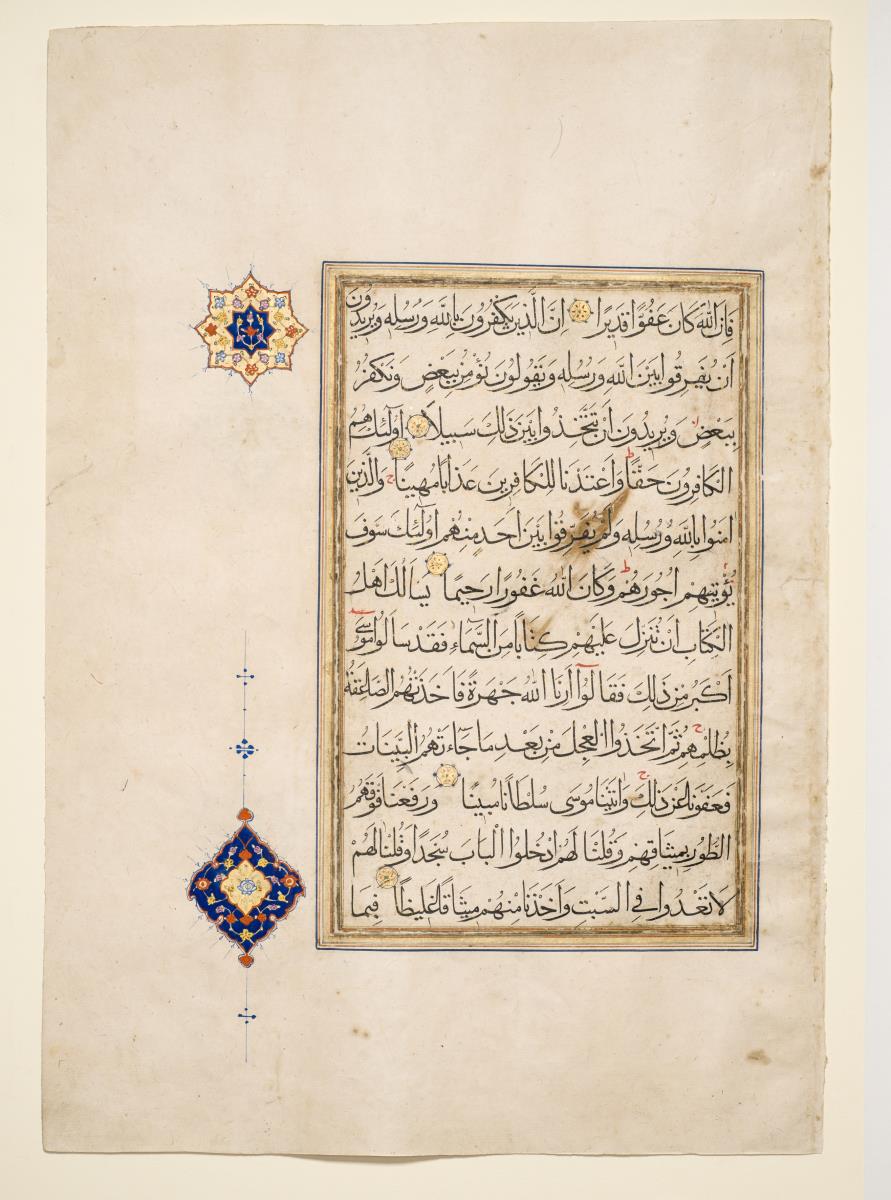 فَاِنَّ اللّٰهَ كَانَ عَفُوًّا قَدِيرًا اِنَّ الَّذِينَ يَكْفُرُونَ بِاللّٰهِ وَرُسُلِهِ وَيُرِيدُونَ
اَنْ يُفَرِّقُوا بَيْنَ اللّٰهِ وَرُسُلِهِ وَيَقُولُونَ نُؤْمِنُ بِبَعْضٍ وَنَكْفُرُ
بِبَعْضٍ وَيُرِيدُونَ اَنْ يَتَّخِذُوا بَيْنَ ذٰلِكَ سَبِيلًا اُولٰٓئِكَ هُمُ
الْكَافِرُونَ حَقًّا وَاَعْتَدْنَا لِلْكَافِرِينَ عَذَابًا مُهِينًا وَالَّذِينَ
اٰمَنُوا بِاللّٰهِ وَرُسُلِهِ وَلَمْ يُفَرِّقُوا بَيْنَ اَحَدٍ مِنْهُمْ اُولٰٓئِكَ سَوْفَ
يُؤْتِيهِمْ اُجُورَهُمْ وَكَانَ اللّٰهُ غَفُورًا رَحِيمًا يَسْاَلُكَ اَهْلُ
الْكِتَابِ اَنْ تُنَزِّلَ عَلَيْهِمْ كِتَابًا مِنَ السَّمَآءِ فَقَدْ سَاَلُوا مُوسٰٓى
اَكْبَرَ مِنْ ذٰلِكَ فَقَالُوٓا اَرِنَا اللّٰهَ جَهْرَةً فَاَخَذَتْهُمُ الصَّاعِقَةُ
بِظُلْمِهِمْ ثُمَّ اتَّخَذُوا الْعِجْلَ مِنْ بَعْدِ مَا جَآءَتْهُمُ الْبَيِّنَاتُ
فَعَفَوْنَا عَنْ ذٰلِكَ وَاٰتَيْنَا مُوسَى سُلْطَانًا مُبِينًا وَرَفَعْنَا فَوْقَهُمُ
الطُّورَ بِمِيثَاقِهِمْ وَقُلْنَا لَهُمُ ادْخُلُوا الْبَابَ سُجَّدًا وَقُلْنَا لَهُمْ
لَا تَعْدُوا فِي السَّبْتِ وَاَخَذْنَا مِنْهُمْ مِيثَاقًا غَلِيظًا فَبِمَا